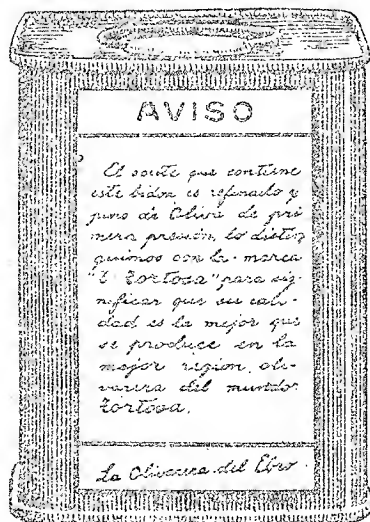 AVISO
El aceite que contiene
este bidon es refinado y
puro de Oliva de pri
mera presión, lo distin
guimos con la marca
"Tortosa" para sig-
nificar que su cali-
dad es la mejor que
se produce en la
mejor region oli-
varera del mundo
Tortosa.
La Olivarera del Ebro